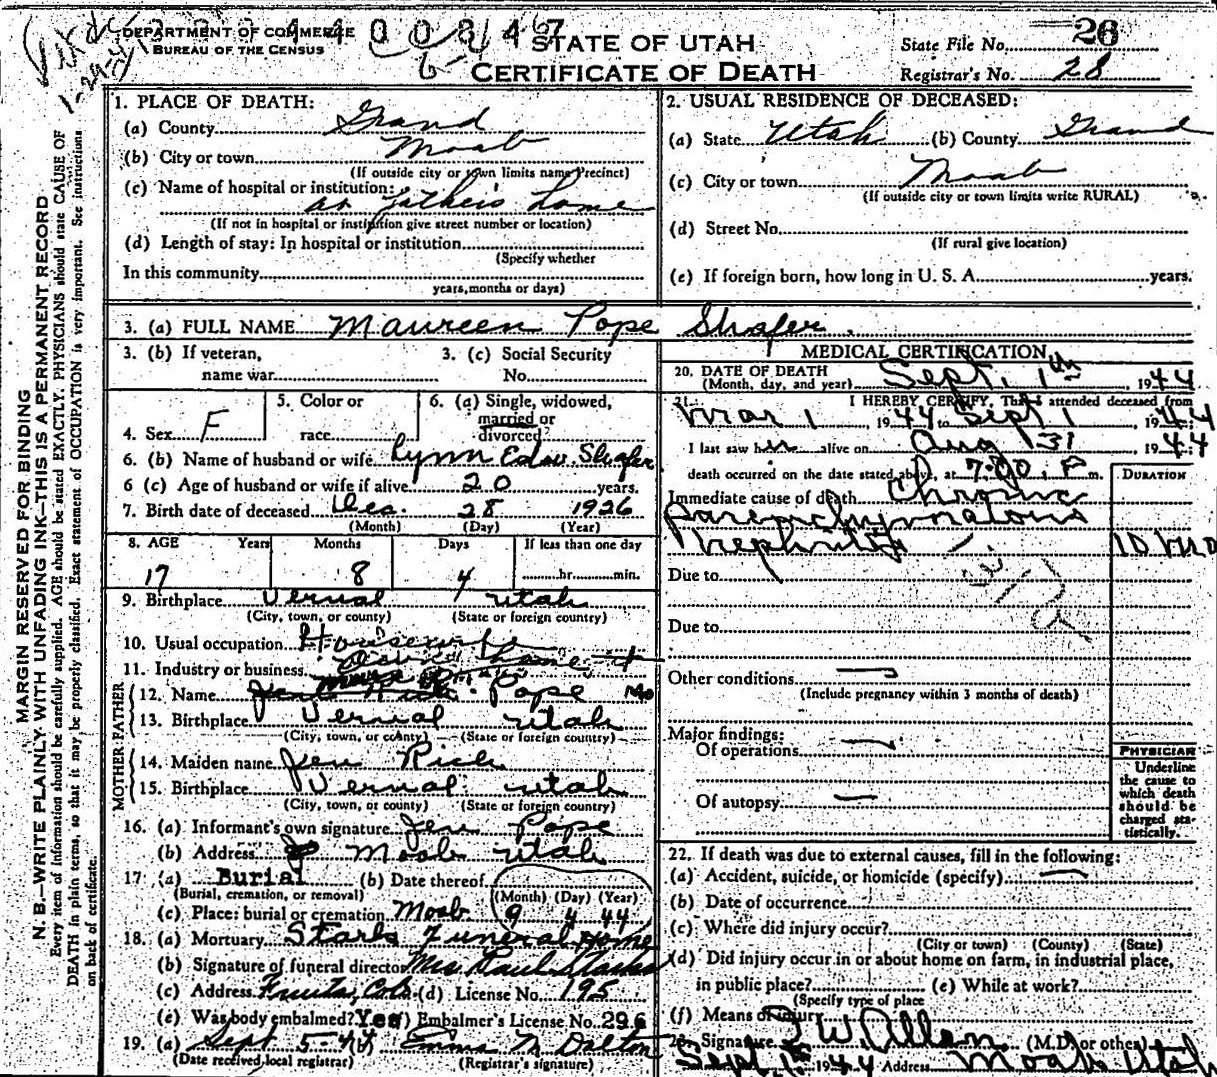 DEPARTMENT OF COMMERCE
BUREAU OF THE CENSUS
STATE OF UTAH
CERTIFICATE OF DEATH
State File No. 26
Registrar's No. 28
MARGIN RESERVED FOR BINDING
N. B.—WRITE PLAINLY WITH UNFADING INK—THIS IS A PERMANENT RECORD
Every item of information should be carefully supplied. AGE should be stated EXACTLY. PHYSICIANS should state CAUSE OF
DEATH in plain terms, so that it may be properly classified. Exact statement of OCCUPATION is very important. See instructions
on back of certificate.
1. PLACE OF DEATH:
(a) County Grand
(b) City or town Moab
(If outside city or town limits name Precinct)
(c) Name of hospital or institution:
at father's home
(If not in hospital or institution give street number or location)
(d) Length of stay: In hospital or institution
(Specify whether
In this community
years, months or days)
2. USUAL RESIDENCE OF DECEASED:
(a) State Utah (b) County Grand
(c) City or town Moab
(If outside city or town limits write RURAL)
(d) Street No.
(If rural give location)
(e) If foreign born, how long in U. S. A. years.
3. (a) FULL NAME Maureen Pope Shafer
3. (b) If veteran, 3. (c) Social Security
name war No.
4. Sex F
5. Color or
race
6. (a) Single, widowed,
married or
divorced
6. (b) Name of husband or wife Lynn Edw. Shafer
6 (c) Age of husband or wife if alive 20 years.
7. Birth date of deceased Dec. 28 1926
(Month) (Day) (Year)
8. AGE Years Months Days If less than one day
17 8 4 hr. min.
9. Birthplace Vernal Utah
(City, town, or county) (State or foreign country)
10. Usual occupation Housewife
11. Industry or business own home
FATHER
12. Name Pope
13. Birthplace Vernal Utah
(City, town, or county) (State or foreign country)
MOTHER
14. Maiden name Jen Rich
15. Birthplace Vernal Utah
(City, town, or county) (State or foreign country)
16. (a) Informant's own signature Jen Pope
(b) Address Moab Utah
17. (a) Burial (b) Date thereof
(Burial, cremation, or removal) (Month) (Day) (Year)
(c) Place: burial or cremation Moab 9 4 44
18. (a) Mortuary Starks Funeral Home
(b) Signature of funeral director Mrs Paul Starks
(c) Address Fruita, Colo. (d) License No. 195
(e) Was body embalmed? Yes (f) Embalmer's License No. 296
19. (a) Sept 5-44 (b) Emma M Dalton
(Date received local registrar) (Registrar's signature)
MEDICAL CERTIFICATION
20. DATE OF DEATH
(Month, day, and year) Sept. 1th, 1944
21. I HEREBY CERTIFY, That I attended deceased from
Mar 1, 1944 to Sept 1, 1944
I last saw her alive on Aug 31, 1944
death occurred on the date stated above, at 7:00 P m.
DURATION
Immediate cause of death Chronic
Parenchymatous
Nephritis 10 mo
Due to
Due to
Other conditions —
(Include pregnancy within 3 months of death)
Major findings:
Of operations —
Of autopsy —
PHYSICIAN
Underline
the cause to
which death
should be
charged sta-
tistically.
22. If death was due to external causes, fill in the following:
(a) Accident, suicide, or homicide (specify) —
(b) Date of occurrence
(c) Where did injury occur?
(City or town) (County) (State)
(d) Did injury occur in or about home on farm, in industrial place,
in public place? (e) While at work?
(Specify type of place
(f) Means of injury
23. Signature W Allen (M.D. or other)
Sept 1944 Address Moab Utah